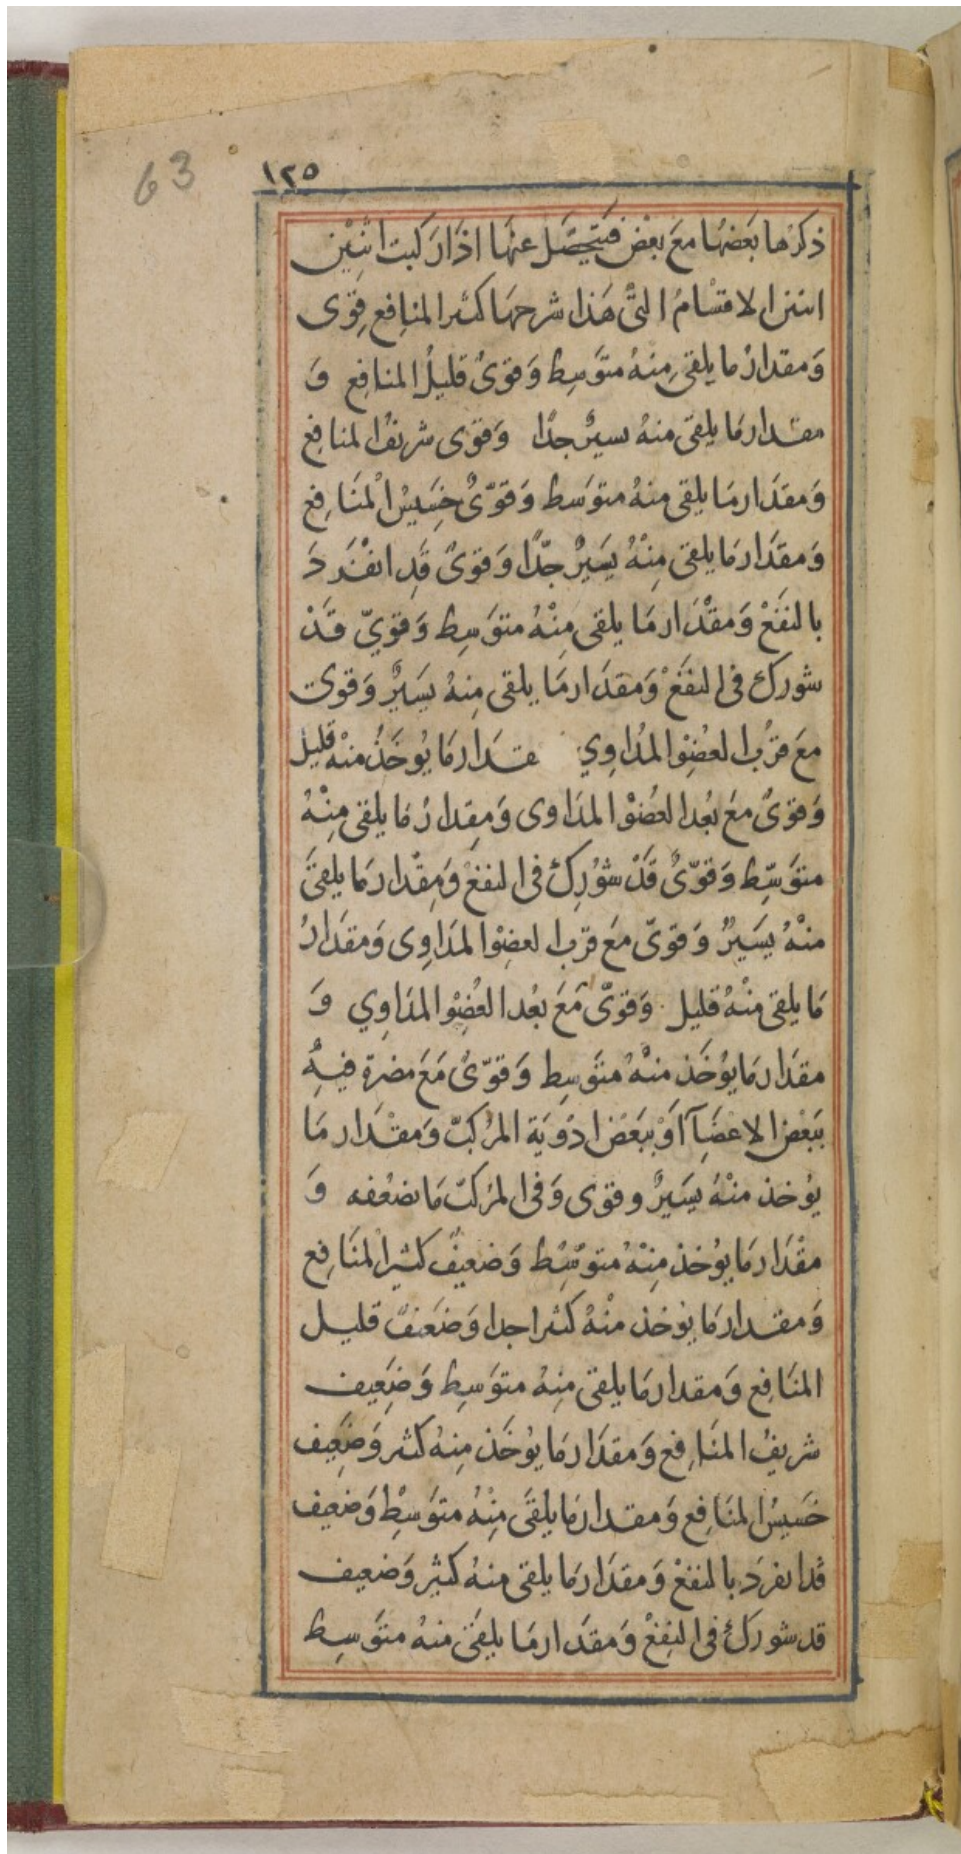 63
١٢٥
ذكرها بعضها مع بعض فيتحصل عنها اذا ركبت اثنين
اثنين الاقسام التي هذا شرحها كثير المنافع قوى
ومقدار ما يلقى منه متوسط وقوى قليل المنافع و
مقدار ما يلقى منه يسير جدا وقوى شريف المنافع
ومقدار ما يلقى منه متوسط وقوى خسيس المنافع
ومقدار ما يلقى منه يسير جدا وقوى قد انفرد
بالنفع ومقدار ما يلقى منه متوسط وقوي قد
شورك في النفع ومقدار ما يلقى منه يسير وقوى
مع قرب العضو المداوي قدار ما يوخذ منه قليل
وقوى مع بعد العضو المداوى ومقدار ما يلقى منه
متوسط وقوى قد شورك في النفع ومقدار ما يلقى
منه يسير وقوى مع قرب العضو المداوى ومقدار
ما يلقى منه قليل وقوى مع بعد العضو المداوي و
مقدار ما يوخذ منه متوسط وقوى مع مضرة فيه
ببعض الاعضآ او ببعض ادوية المركب ومقدار ما
يوخذ منه يسير وقوى وفى المركب ما يضعفه و
مقدار ما يوخذ منه متوسط وضعيف كثير المنافع
ومقدار ما يوخذ منه كثير اجدا وضعيف قليل
المنافع ومقدار ما يلقى منه متوسط وضعيف
شريف المنافع ومقدار ما يوخذ منه كثير وضعيف
خسيس المنافع ومقدار ما يلقى منه متوسط وضعيف
قد انفرد بالنفع ومقدار ما يلقى منه كثير وضعيف
قد شورك في النفع ومقدار ما يلقى منه متوسط